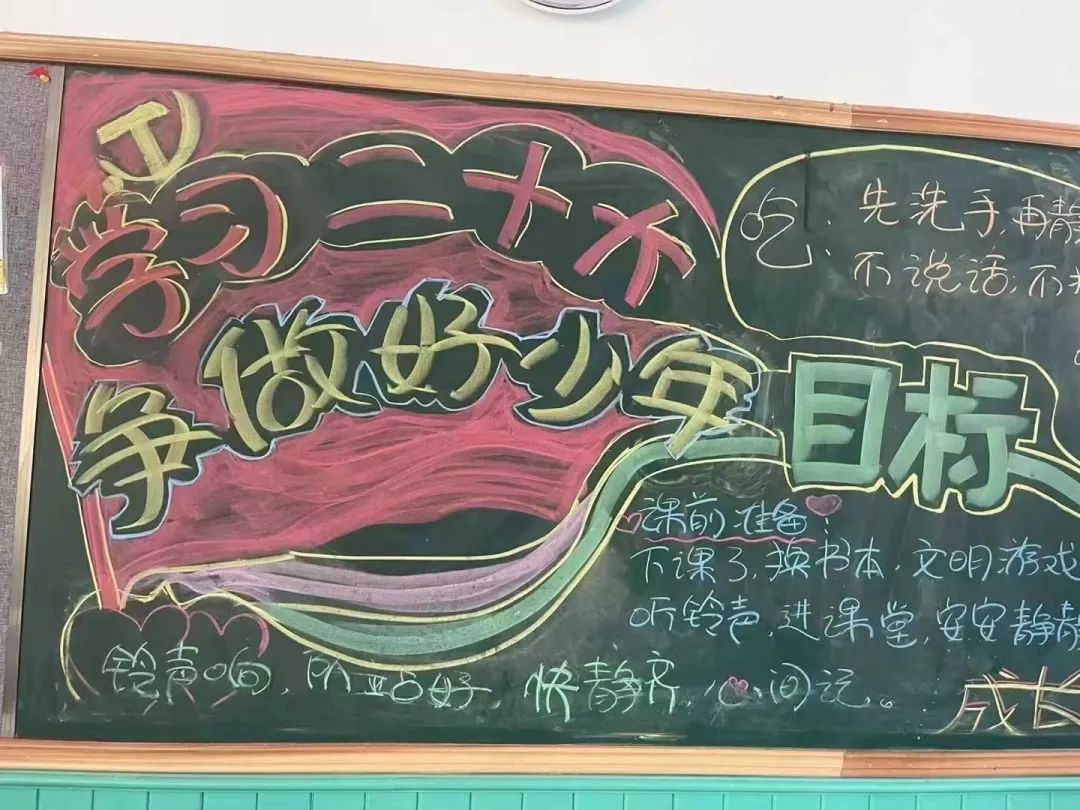 学习二十大
争做好少年
吃：先洗手，再静
不说话，不
目标
课前准备
下课了，换书本，文明游戏
听铃声，进课堂，安安静静
铃声响，队站好，快静齐，心间记。
成长